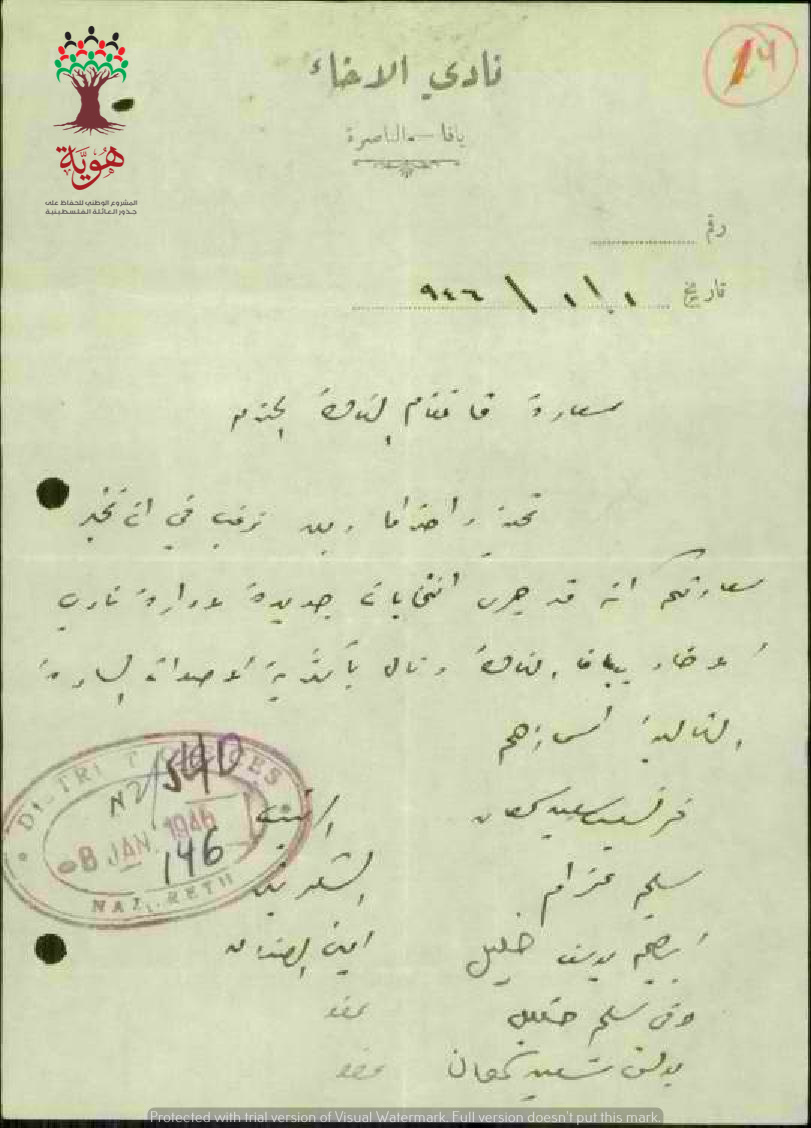 هوية
المشروع الوطني للحفاظ على
جذور العائلة الفلسطينية
نادي الاخاء
يافا — الناصرة
رقم
تاريخ ١ / ١ / ٩٤٦
سعادة قائمقام الناصرة المحترم
تحية واحتراما وبعد نرغب في ان نخبر
سعادتكم انه قد جرى انتخابات جديدة لادارة نادي
الاخاء بيافا الناصرة ونال بأكثرية الاصوات السادة
التالية اسماؤهم
فرنسيس سعيد كنعان
سليم عزام السكرتير
ابراهيم يوسف خليل امين الصندوق
سليم خليل عضو
سعيد كنعان عضو
DISTRICT OFFICES
N2/54/D
8 JAN 1946
146
NAZARETH
Protected with trial version of Visual Watermark. Full version doesn't put this mark.